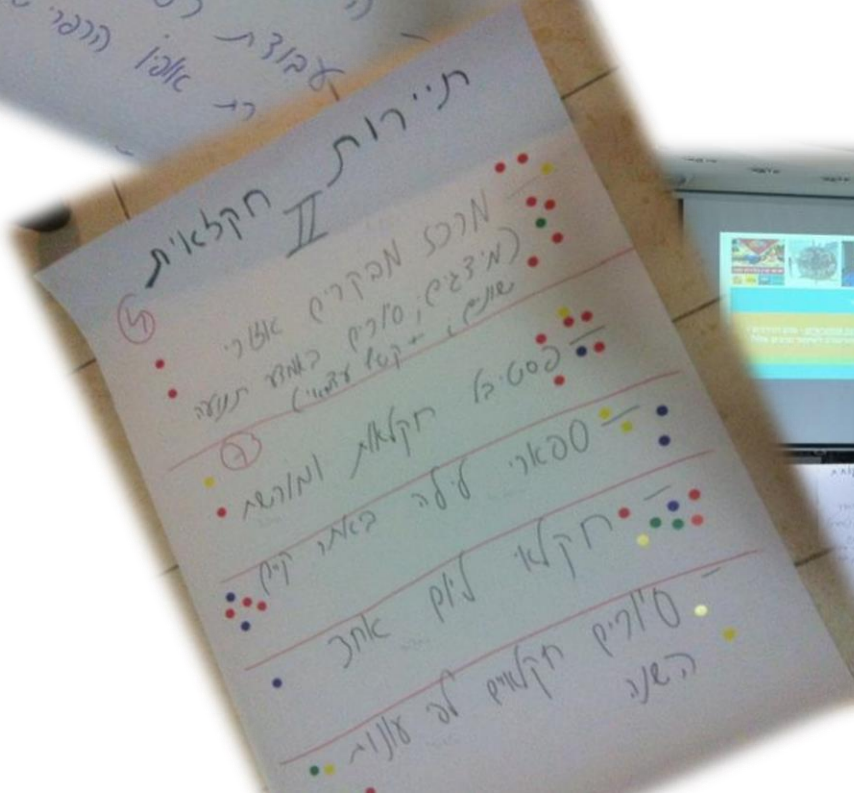 עבודת
אופן הרפרי
תיירות חקלאית
II
מרכז מבקרים אזורי
(מיצגים, סיורים באמצעי תנועה
שונים, + קטיף עצמאי)
4
פסטיבל חקלאות ומורשת
7
ספארי לילה באתר קיים
חקלאי ליום אחד
סיורים חקלאיים לפי עונות
השנה